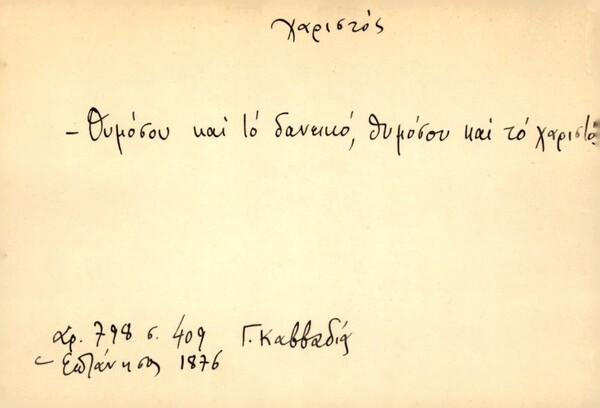 χαριστός
– Θυμόσου καί τό δανεικό, θυμόσου καί τό χαριστό.
αρ. 798 σ. 409 Γ. Καββαδία
– Επτάνησος 1876